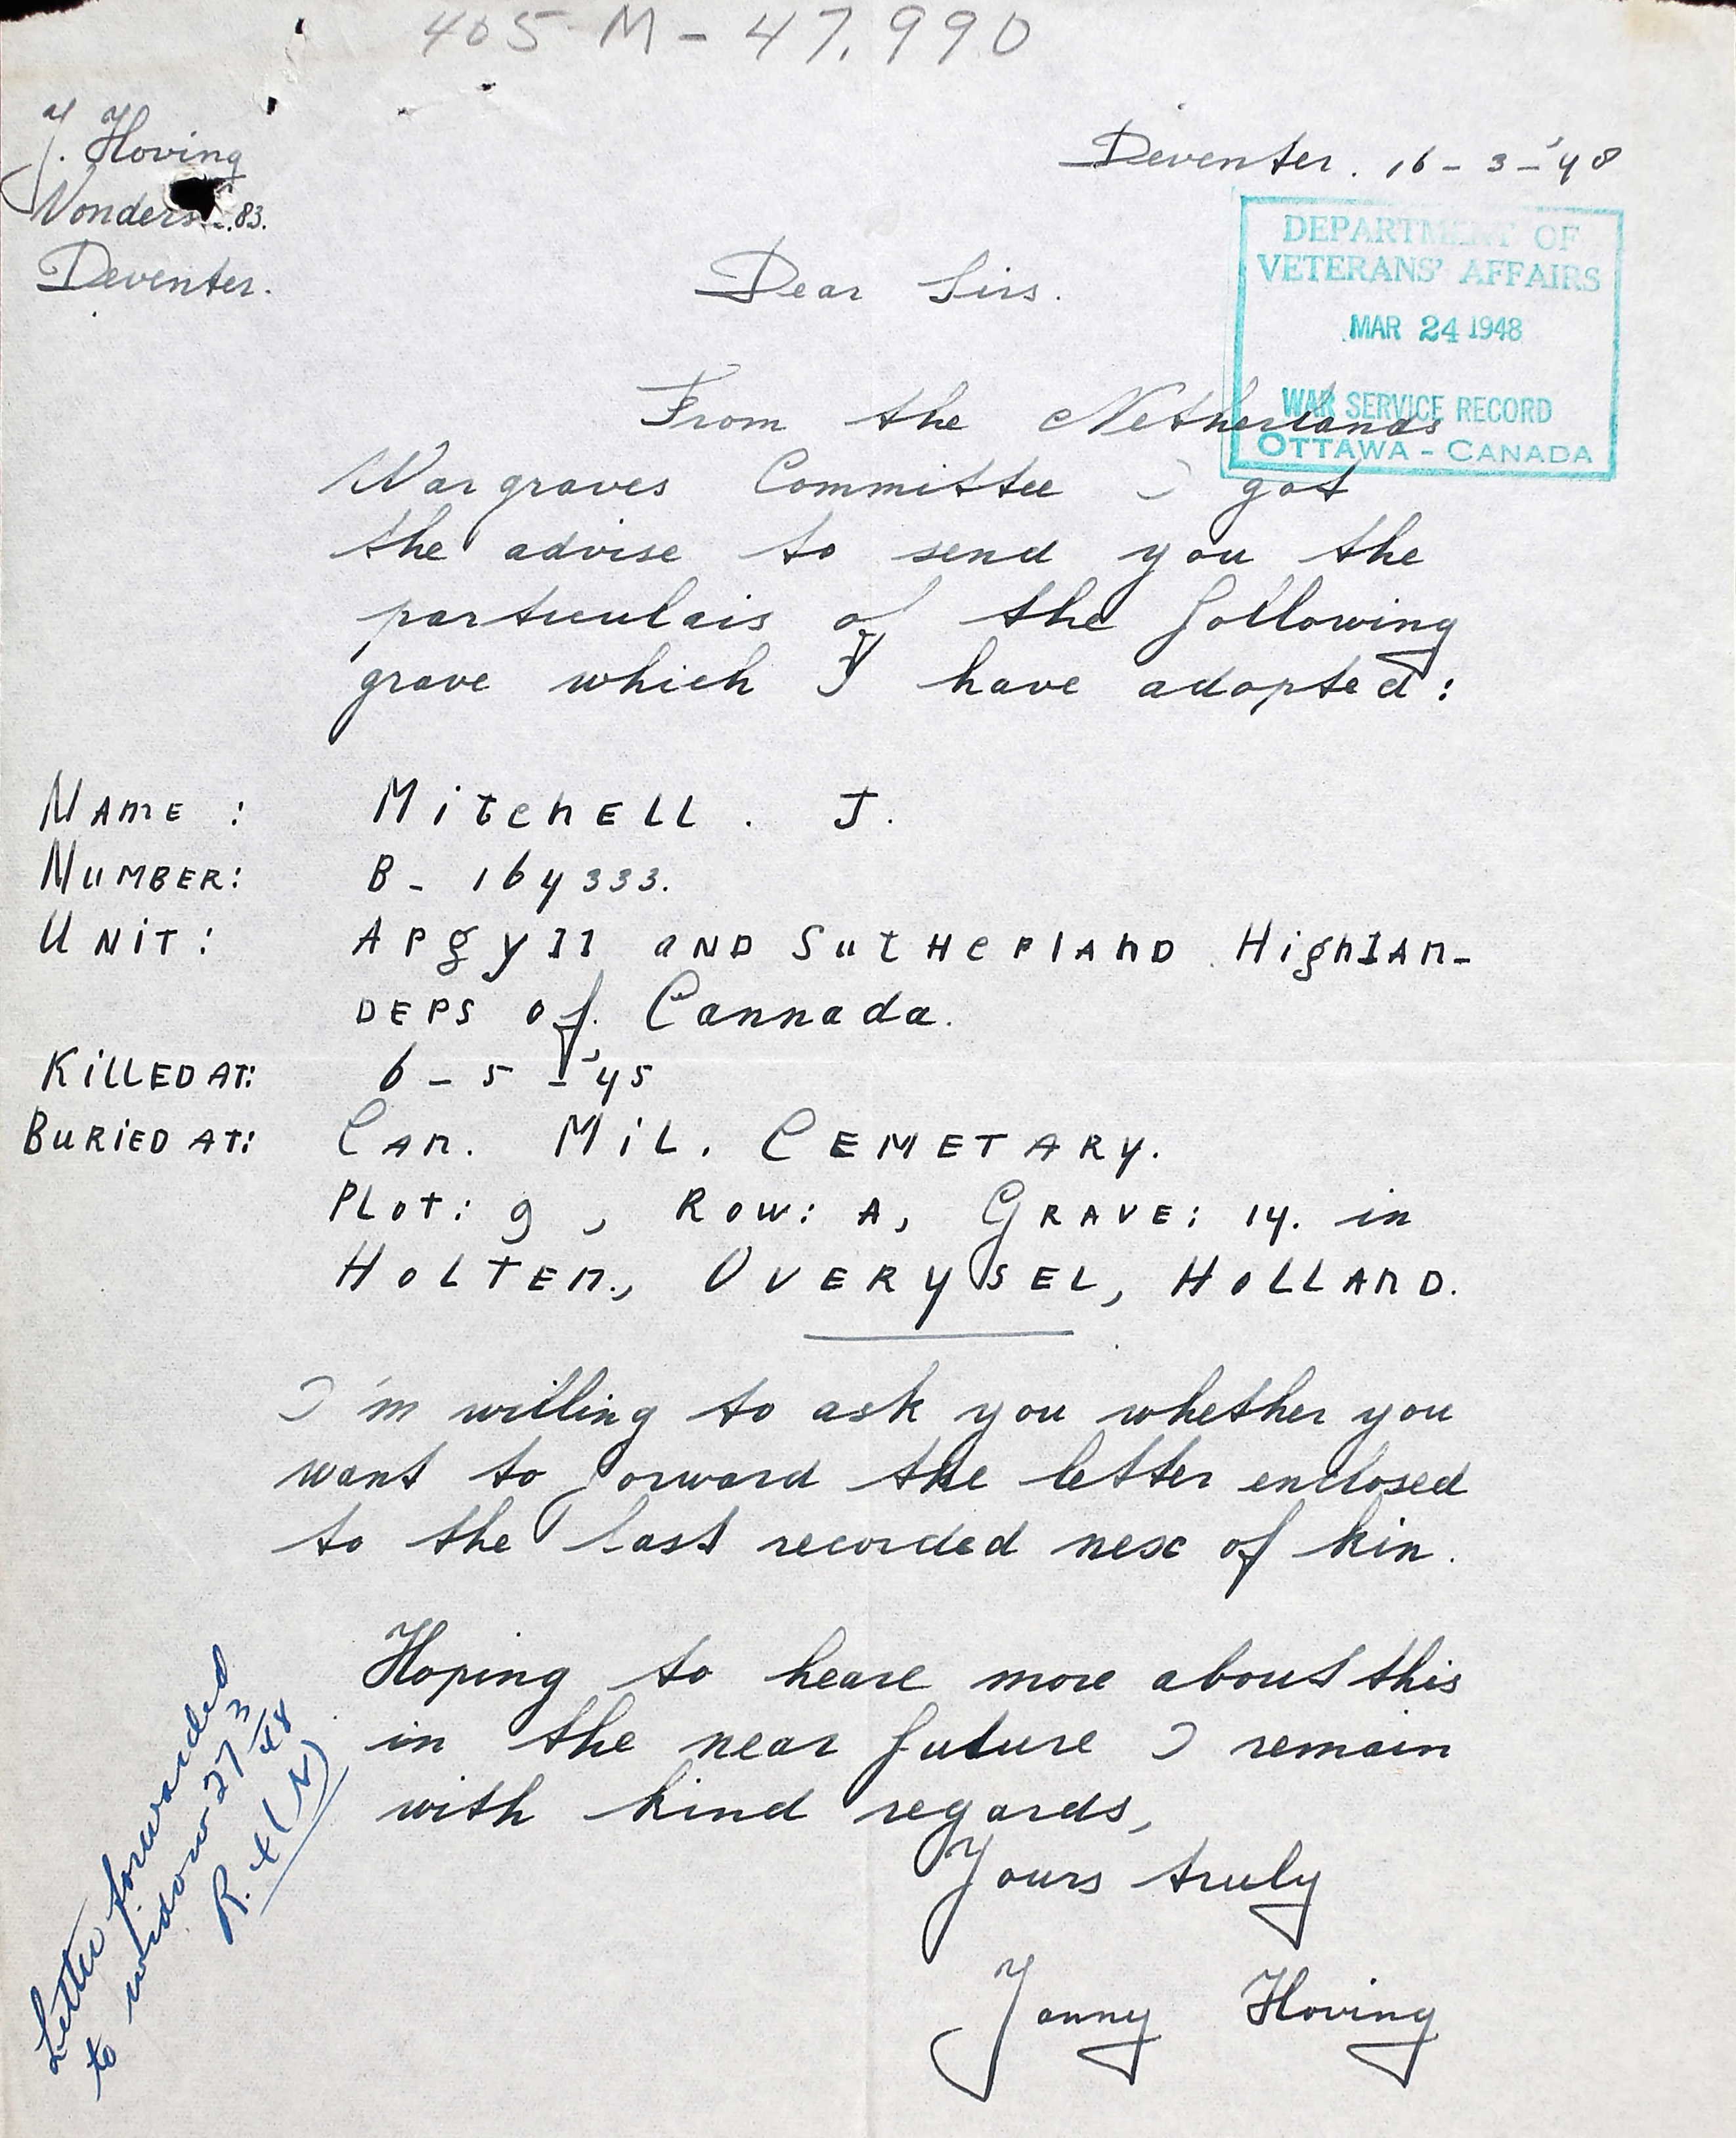 405-M-47.990
J. Hoving
Deventer. 16-3-'48
83.
Deventer.
DEPARTMENT OF
VETERANS' AFFAIRS
MAR 24 1948
WAR SERVICE RECORD
OTTAWA - CANADA
Dear Sirs.
From the Netherlands
Wargraves Committee I got
the advise to send you the
particulars of the following
grave which I have adopted:
NAME : MitchELL. J.
NUMBER: B- 164333.
UNIT: Argyll and Sutherland Highlan-
DERS of Cannada.
KiLLED AT: 6-5-'45
BURIED AT: CAN. MIL. CEMETARY.
PLOT: 9, ROW: A, GRAVE: 14. in
HOLTEN., OVERYSEL, HOLLAND.
I'm willing to ask you whether you
want to forward the letter enclosed
to the last recorded nex of kin.
Hoping to heare more about this
in the near future I remain
with kind regards,
Yours truly
Janny Hoving
Letter forwarded
to widow 27/3/48